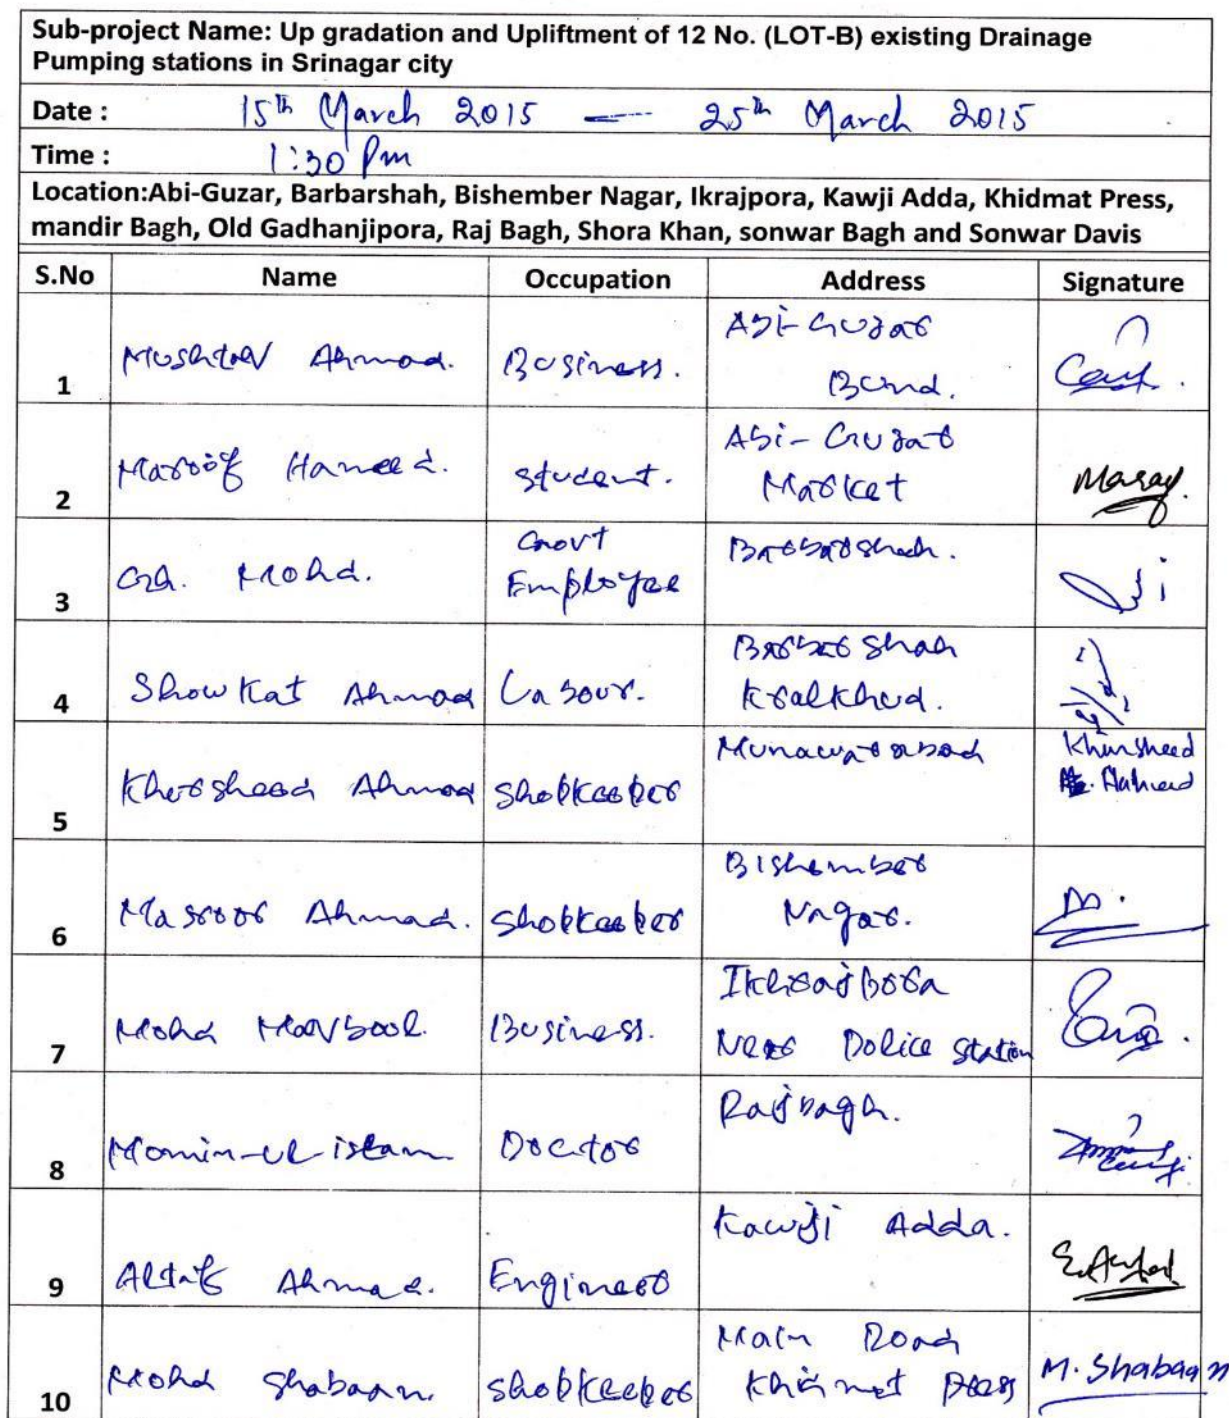 Sub-project Name: Up gradation and Upliftment of 12 No. (LOT-B) existing Drainage
Pumping stations in Srinagar city
Date : 15th March 2015 — 25th March 2015
Time : 1:30 Pm
Location:Abi-Guzar, Barbarshah, Bishember Nagar, Ikrajpora, Kawji Adda, Khidmat Press,
mandir Bagh, Old Gadhanjipora, Raj Bagh, Shora Khan, sonwar Bagh and Sonwar Davis
S.No Name Occupation Address Signature
1 Mushtaq Ahmad. Business. Abi-Guzar
Bund.
2 Maroof Hameed. student. Abi-Guzar
Market
3 Gh. Mohd. Govt
Employee
Barbarshah.
4 Showkat Ahmad Labour. Barbar Shah
Kralkhud.
5 Khursheed Ahmad Shopkeeper Munawarabad Khursheed
6 Masroor Ahmad. Shopkeeper Bishember
Nagar.
7 Mohd Maqbool. Business. Ikhrajpora
Near Police Station
8 Momin-ul-islam Doctor Rajbagh.
9 Altaf Ahmad. Engineer Kawji Adda.
10 Mohd Shabaan. Shopkeeper Main Road
Khidmat Press
M. Shabaan